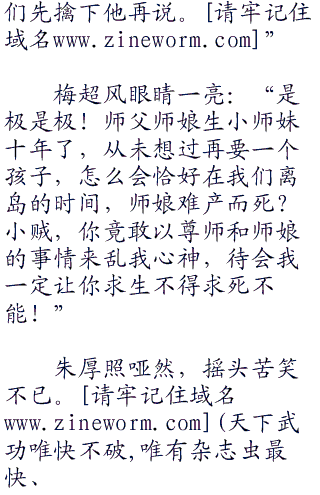 们先擒下他再说。[请牢记住
域名www.zineworm.com]”
梅超风眼睛一亮：“是
极是极！师父师娘生小师妹
十年了，从未想过再要一个
孩子，怎么会恰好在我们离
岛的时间，师娘难产而死？
小贼，你竟敢以尊师和师娘
的事情来乱我心神，待会我
一定让你求生不得求死不
能！”
朱厚照哑然，摇头苦笑
不已。[请牢记住域名
www.zineworm.com](天下武
功唯快不破,唯有杂志虫最
快、